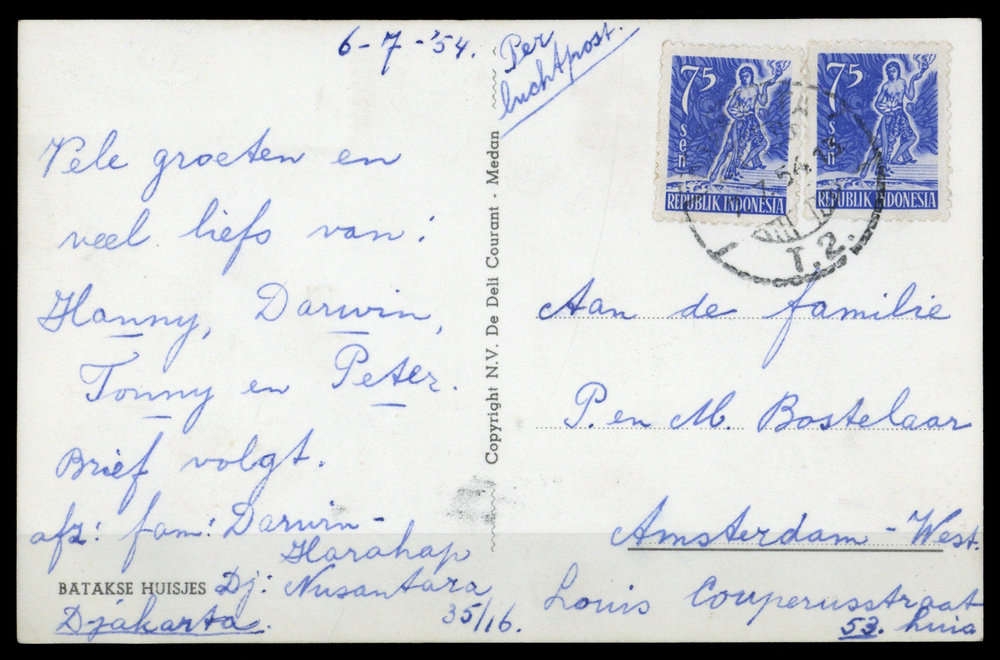 6-7-'54.
Per
luchtpost.
Vele groeten en
veel liefs van:
Hanny, Darwin,
Tonny en Peter.
Brief volgt.
afz: fam: Darwin-
Harahap
BATAKSE HUISJES Dj: Nusantara
Djakarta. 35/16.
Copyright N.V. De Deli Courant - Medan
75
sen
REPUBLIK INDONESIA
75
sen
REPUBLIK INDONESIA
54
1.2.
Aan de familie
P. en M. Bostelaar
Amsterdam-West.
Louis Couperusstraat
53. huis